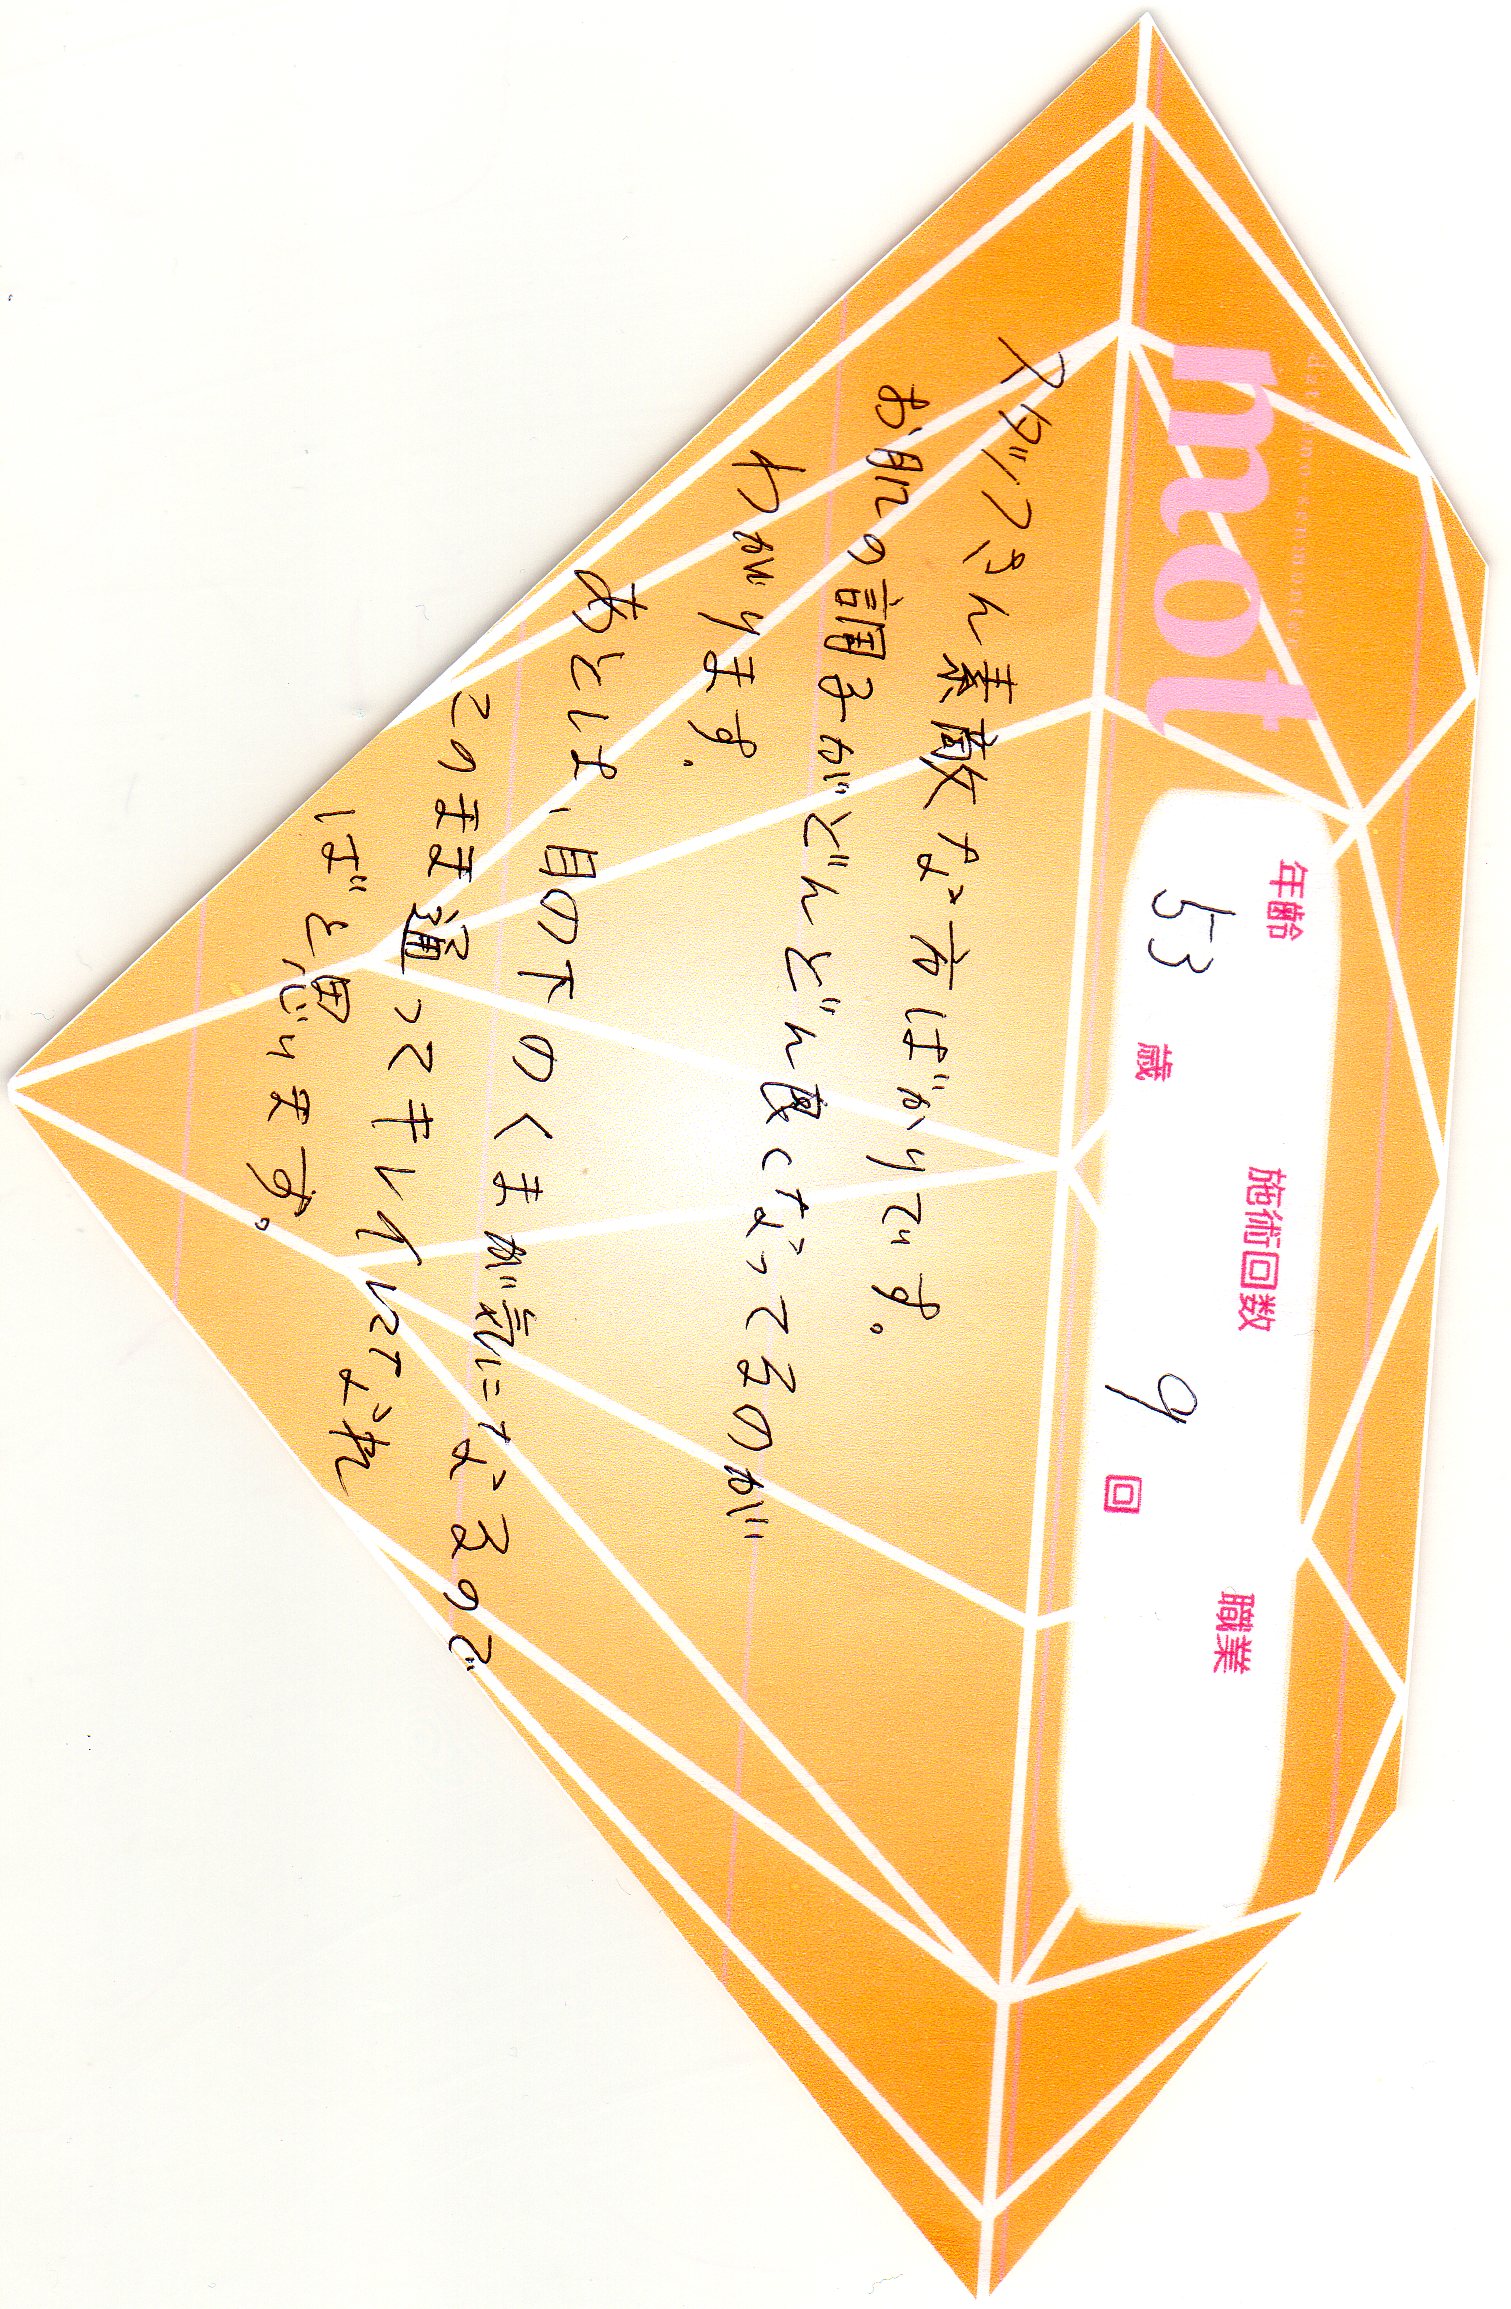 mot
年齢 施術回数 職業
53 歳 9 回
スタッフさん素敵な方ばかりです。
お肌の調子がどんどん良くなってるのが
わかります。
あとは、目の下のくまが気になるので
このまま通ってキレイになれ
ばと思います。